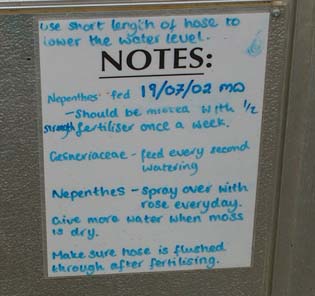 use short length of hose to
lower the water level.
NOTES:
Nepenthes fed 19/07/02 MD
- Should be misted with 1/2
strength fertiliser once a week.
Gesneriaceae - feed every second
watering
Nepenthes - spray over with
rose everyday.
Give more water when moss
is dry.
Make sure hose is flushed
through after fertilising.